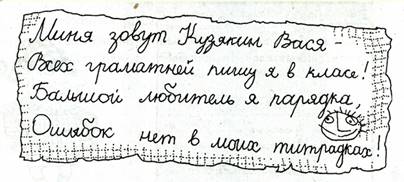 Миня зовут Кузякин Вася –
Всех граматней пишу я в класе!
Балшой любитель я парядка,
Ошыбок нет в моих титрадках!